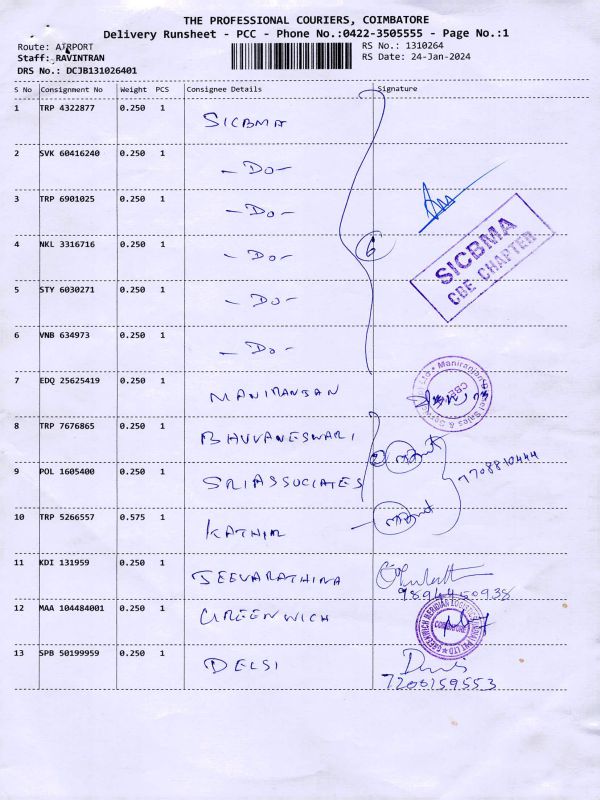 THE PROFESSIONAL COURIERS, COIMBATORE
Delivery Runsheet - PCC - Phone No.:0422-3505555 - Page No.:1
Route: AIRPORT
RS No.: 1310264
Staff: RAVINTRAN
RS Date: 24-Jan-2024
DRS No.: DCJB131026401
S No Consignment No Weight PCS Consignee Details Signature
1 TRP 4322877 0.250 1 SICBMA
2 SVK 60416240 0.250 1 - Do -
3 TRP 6901025 0.250 1 - Do -
4 NKL 3316716 0.250 1 - Do - 6
SICBMA
CBE-CHAPTER
5 STY 6030271 0.250 1 - Do -
6 VNB 634973 0.250 1 - Do -
7 EDQ 25625419 0.250 1 MANIRANJAN
8 TRP 7676865 0.250 1 BHUVANESWARI
2
7708810444
9 POL 1605400 0.250 1 SRI ASSOCIATES
10 TRP 5266557 0.575 1 KATHIR
11 KDI 131959 0.250 1 JEEVARATHINA
9894450938
12 MAA 104484001 0.250 1 GREENWICH
GREENWICH MERIDIAN
COIMBATORE
13 SPB 50199959 0.250 1 DELSI
7200159553